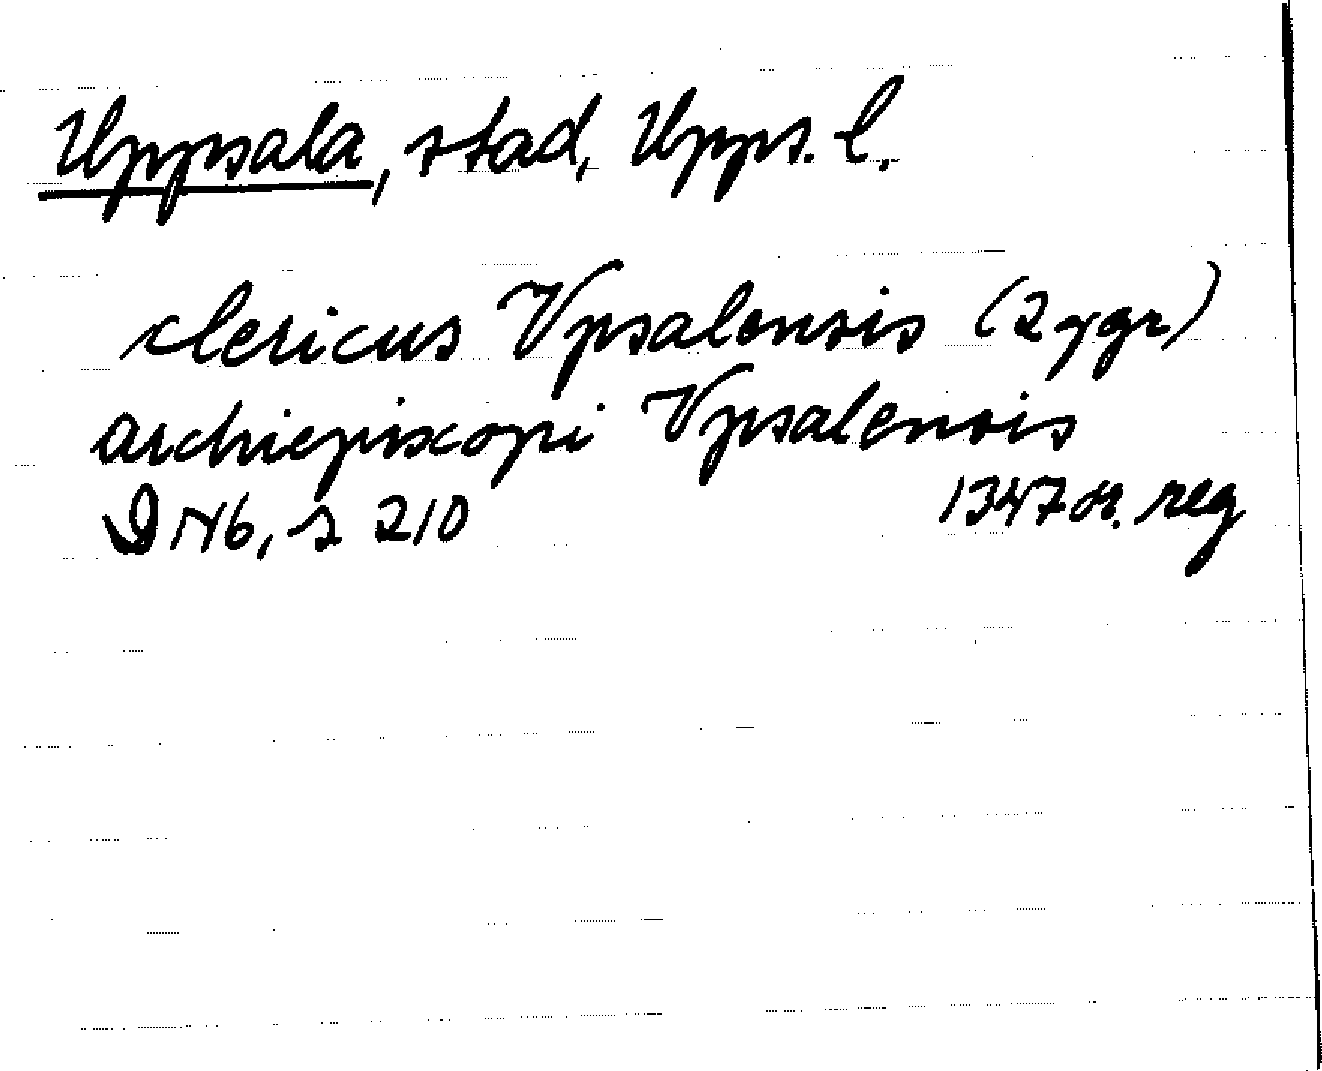 Uppsala, stad, Upps. l.
clericus Vpsalensis (2 ggr)
archiepiscopi Vpsalensis
1347 or. reg
s 210